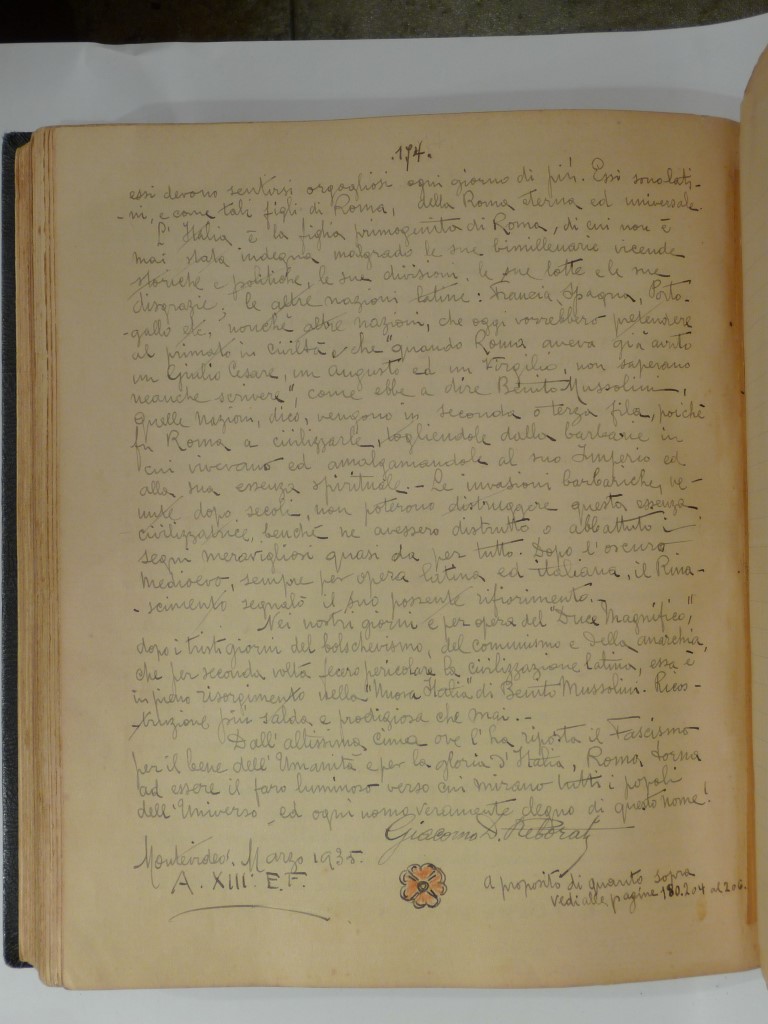 .174.
essi devono sentirsi orgogliosi ogni giorno di più. Essi sono lati-
-ni, e come tali figli di Roma, della Roma eterna ed universale.
L'Italia è la figlia primogenita di Roma, di cui non è
mai stata indegna malgrado le sue bimillenarie vicende
storiche e politiche, le sue divisioni, le sue lotte e le sue
disgrazie; le altre nazioni latine: Francia, Spagna, Porto-
-gallo etc, nonchè altre nazioni, che oggi vorrebbero pretendere
al primato in civiltà e che "quando Roma aveva già avuto
un Giulio Cesare, un Augusto ed un Virgilio, non sapevano
neanche scrivere", come ebbe a dire Benito Mussolini,
quelle nazioni, dico, vengono in seconda o terza fila, poichè
fu Roma a civilizzarle, togliendole dalla barbarie in
cui vivevano ed amalgamandole al suo Imperio ed
alla sua essenza spirituale. - Le invasioni barbariche, ve-
nute dopo secoli, non poterono distruggere questa essenza
civilizzatrice, benchè ne avessero distrutto o abbattuto i
segni meravigliosi quasi da per tutto. Dopo l'oscuro
Medioevo, sempre per opera latina ed italiana, il Rina-
-scimento segnalò il suo possente rifiorimento. -
Nei nostri giorni e per opera del "Duce Magnifico",
dopo i tristi giorni del bolschevismo, del communismo e della anarchia,
che per seconda volta fecero pericolare la civilizzazione latina, essa è
in pieno risorgimento nella "Nuova Italia" di Benito Mussolini. Ricos-
-truzione più salda e prodigiosa che mai. -
Dall'altissima cima ove l'ha riposta il Fascismo
per il bene dell'Umanità e per la gloria d'Italia, Roma torna
ad essere il faro luminoso verso cui mirano tutti i popoli
dell'Universo ed ogni uomo veramente degno di questo nome!
Giacomo D.
Montevideo. Marzo 1935.
A. XIII. E.F.
A proposito di quanto sopra
vedi alle pagine 180.204 al 206.